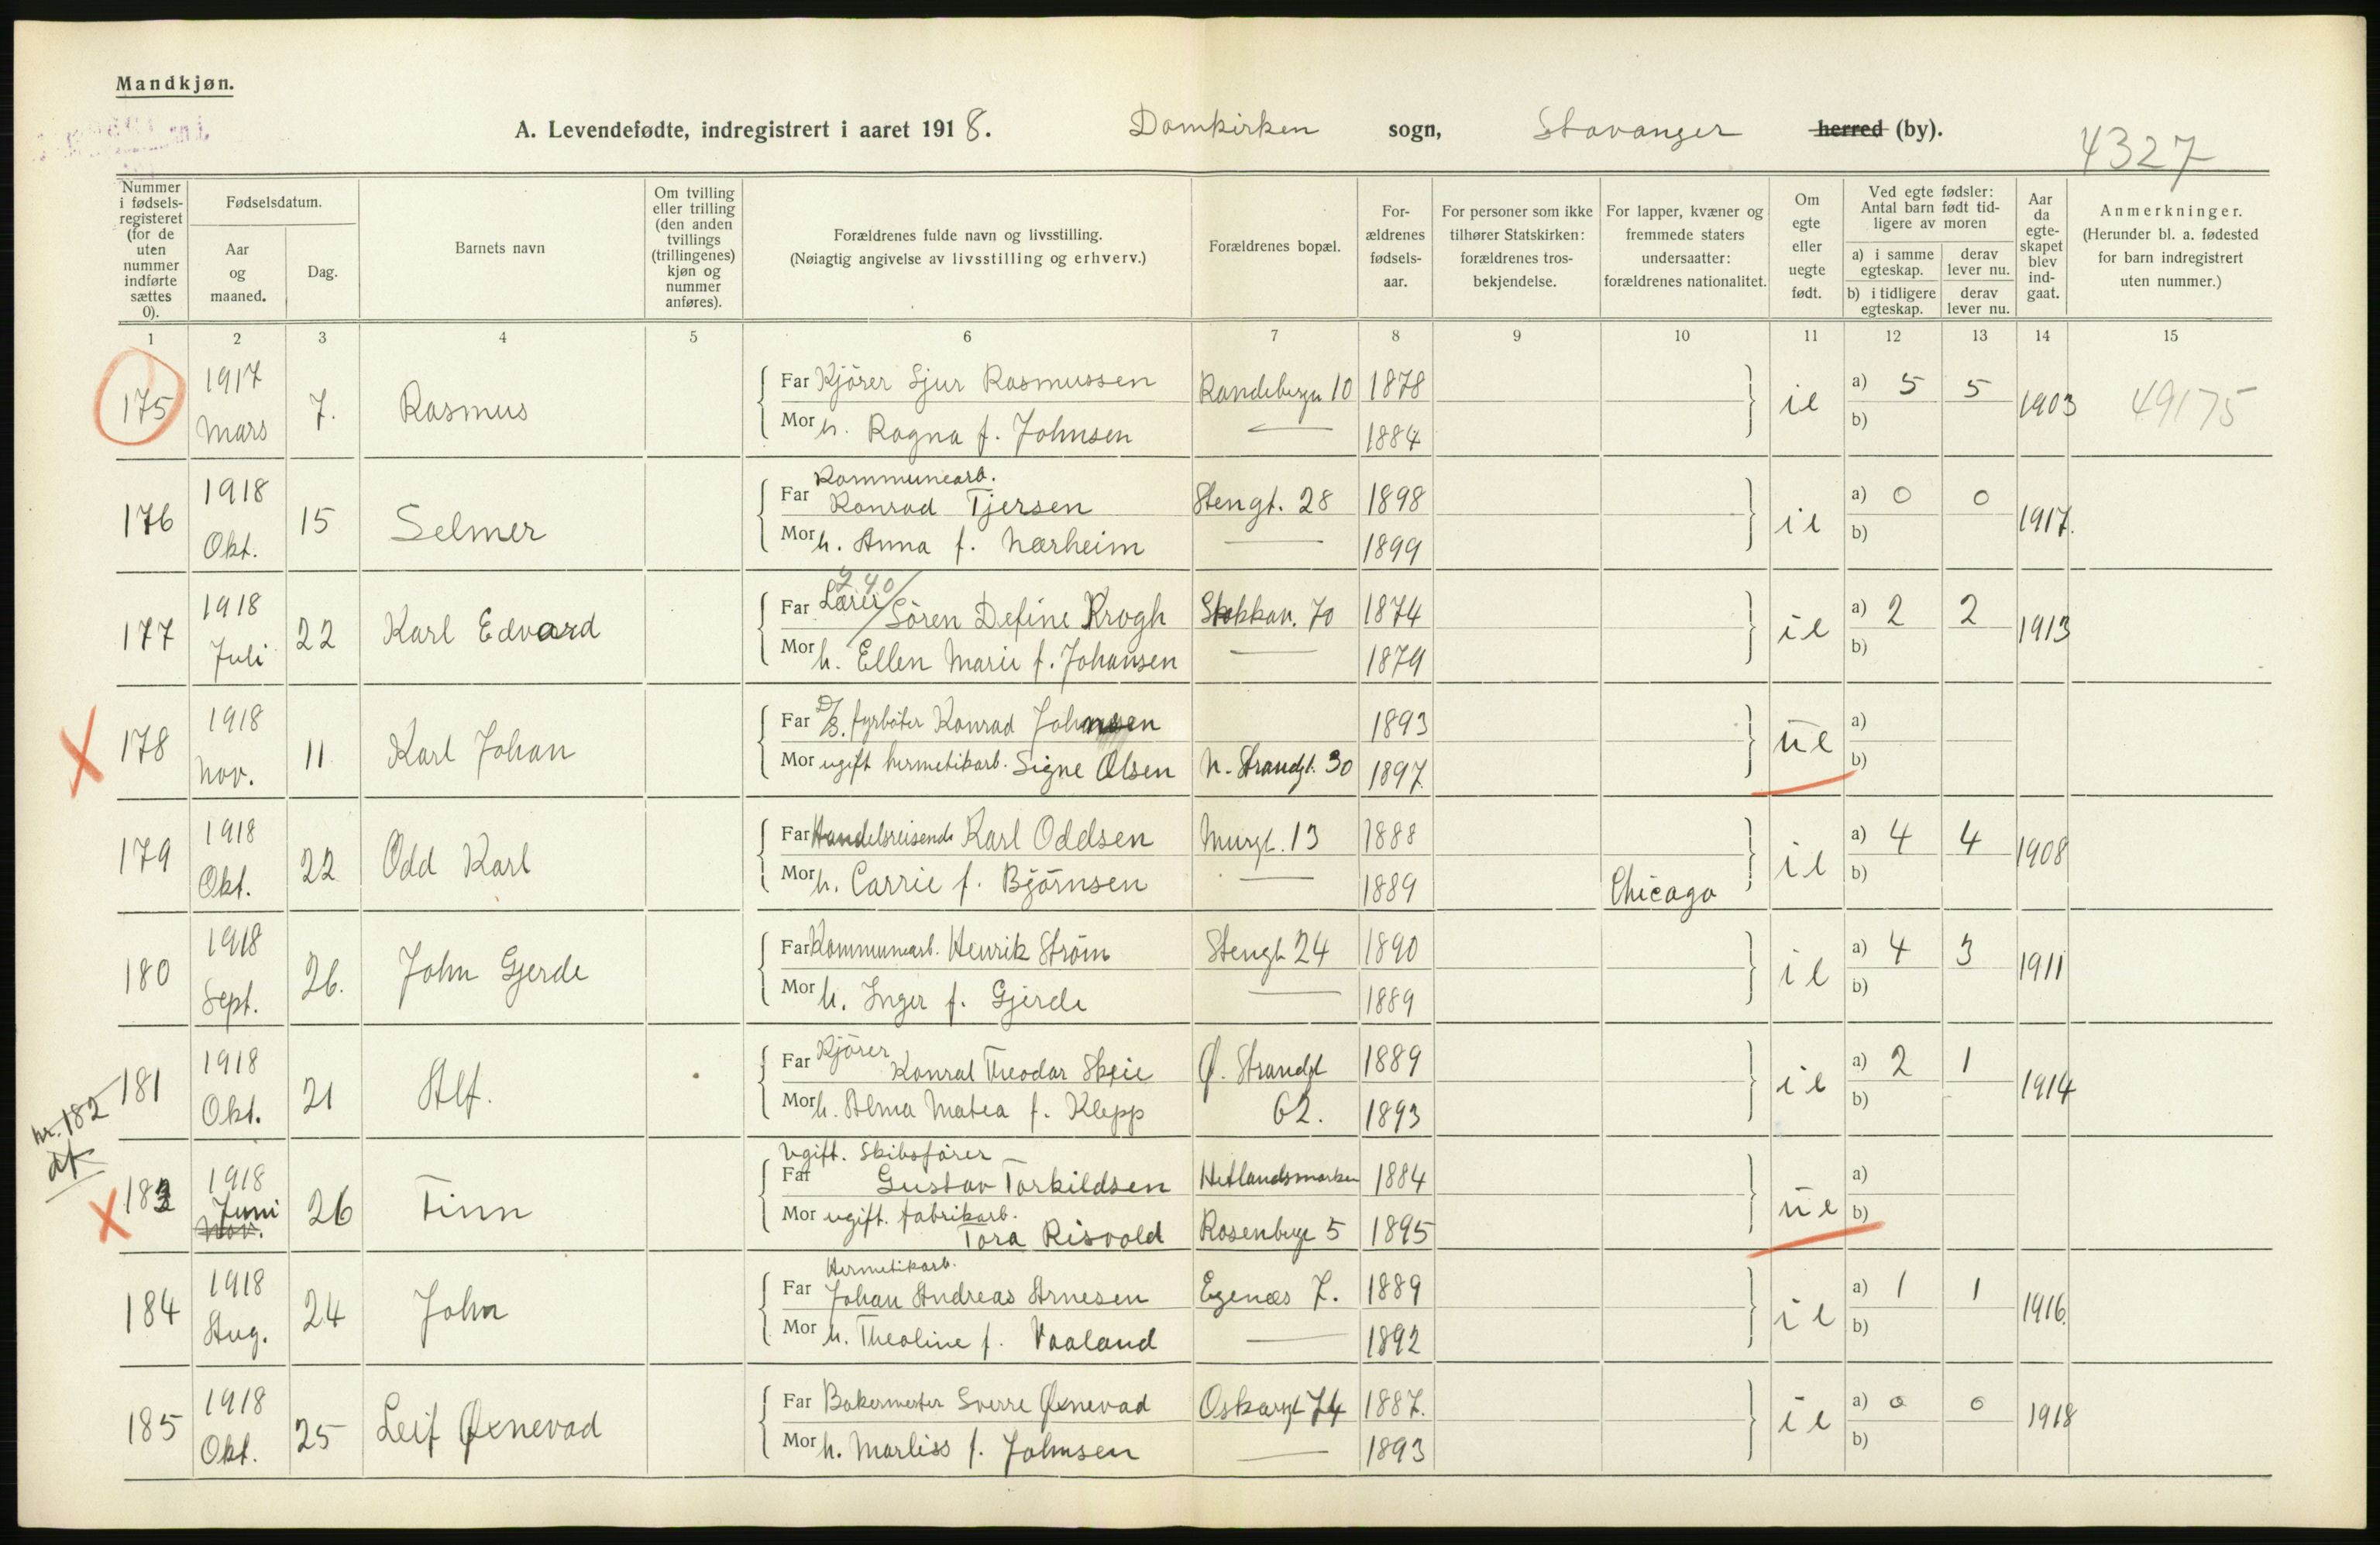 Mandkjøn.
A. Levendefødte, indregistrert i aaret 1918. Domkirken sogn, Stavanger herred (by).
4327
Nummer i fødselsregisteret (for de uten nummer indførte sættes 0).
Fødselsdatum.
Aar og maaned.
Dag.
Barnets navn
Om tvilling eller trilling (den anden tvillings (trillingenes) kjøn og nummer anføres).
Forældrenes fulde navn og livsstilling.
(Nøiagtig angivelse av livsstilling og erhverv.)
Forældrenes bopæl.
Forældrenes fødselsaar.
For personer som ikke tilhører Statskirken: forældrenes trosbekjendelse.
For lapper, kvæner og fremmede staters undersaatter: forældrenes nationalitet.
Om egte eller uegte født.
Ved egte fødsler: Antal barn født tidligere av moren
a) i samme egteskap. derav lever nu.
b) i tidligere egteskap. derav lever nu.
Aar da egteskapet blev indgaat.
Anmerkninger.
(Herunder bl. a. fødested for barn indregistrert uten nummer.)
1 2 3 4 5 6 7 8 9 10 11 12 13 14 15
175 1917 Mars 7. Rasmus
Far Kjörer Sjur Rasmussen Randebergn 10 1878
Mor h. Ragna f. Johnsen — 1884
ie a) 5 5 b) 1903 49175
176 1918 Okt. 15 Selmer
Kommunearb.
Far Konrad Tjersen Stengt. 28 1898
Mor h. Anna f. Nærheim — 1899
ie a) 0 0 b) 1917.
177 1918 Juli 22 Karl Edvard
240
Far Lærer Sören Define Krogh Stokkav. 70 1874
Mor h. Ellen Marie f. Johansen — 1879
ie a) 2 2 b) 1913
X 178 1918 Nov. 11 Karl Johan
Far D/S. fyrböter Konrad Johnsen 1893
Mor ugift hermetikarb. Signe Olsen N. Strandgt. 30 1897
ue a) b)
179 1918 Okt. 22 Odd Karl
Far Handelsreisende Karl Oddsen Murgt. 13 1888
Mor h. Carrie f. Björnsen — 1889 Chicago
ie a) 4 4 b) 1908
180 1918 Sept. 26. John Gjerde
Far Kommunearb. Henrik Ström Stengt 24 1890
Mor h. Inger f. Gjerde — 1889
ie a) 4 3 b) 1911
181 1918 Okt. 21 Alf.
Far Kjörer Konral Theodor Skeie Ø. Strandgt 1889
Mor h. Alma Matea f. Klepp 62. 1893
ie a) 2 1 b) 1914
nr. 182
X 183 1918 Juni Nov. 26 Finn
Ugift. Skibsförer
Far Gustav Torkildsen Hetlandsmarken 1884
Mor ugift. fabrikarb. Tora Risvold Rosenbergt 5 1895
ue a) b)
184 1918 Aug. 24 John
Hermetikarb.
Far Johan Andreas Arnesen Egenæs 7. 1889
Mor h. Theoline f. Vaaland — 1892
ie a) 1 1 b) 1916
185 1918 Okt. 25 Leif Øxnevad
Far Bakermester Sverre Øxnevad Oskarsgt 74 1887.
Mor h. Marliss f. Johnsen — 1893
ie a) 0 0 b) 1918